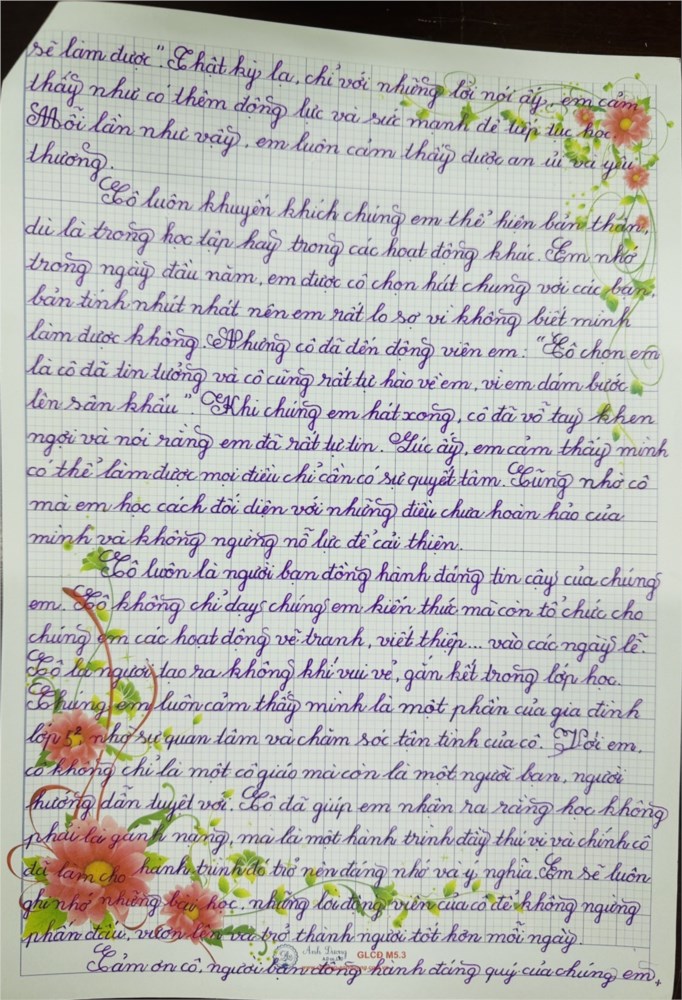 sẽ làm được". Thật kỳ lạ, chỉ với những lời nói ấy, em cảm
thấy như có thêm động lực và sức mạnh để tiếp tục học.
Mỗi lần như vậy, em luôn cảm thấy được an ủi và yêu
thương.
Cô luôn khuyến khích chúng em thể hiện bản thân,
dù là trong học tập hay trong các hoạt động khác. Em nhớ
trong ngày đầu năm, em được cô chọn hát chung với các bạn,
bản tính nhút nhát nên em rất lo sợ vì không biết mình
làm được không. Nhưng cô đã đến động viên em: "Cô chọn em
là cô đã tin tưởng và cô cũng rất tự hào về em, vì em dám bước
lên sân khấu". Khi chúng em hát xong, cô đã vỗ tay khen
ngợi và nói rằng em đã rất tự tin. Lúc ấy, em cảm thấy mình
có thể làm được mọi điều chỉ cần có sự quyết tâm. Cũng nhờ cô
mà em học cách đối diện với những điều chưa hoàn hảo của
mình và không ngừng nỗ lực để cải thiện.
Cô luôn là người bạn đồng hành đáng tin cậy của chúng
em. Cô không chỉ dạy chúng em kiến thức mà còn tổ chức cho
chúng em các hoạt động vẽ tranh, viết thiệp... vào các ngày lễ.
Cô là người tạo ra không khí vui vẻ, gắn kết trong lớp học.
Chúng em luôn cảm thấy mình là một phần của gia đình
lớp 5² nhờ sự quan tâm và chăm sóc tận tình của cô. Với em,
cô không chỉ là một cô giáo mà còn là một người bạn, người
hướng dẫn tuyệt vời. Cô đã giúp em nhận ra rằng học không
phải là gánh nặng, mà là một hành trình đầy thú vị và chính cô
đã làm cho hành trình đó trở nên đáng nhớ và ý nghĩa. Em sẽ luôn
ghi nhớ những bài học, những lời động viên của cô để không ngừng
phấn đấu, vươn lên và trở thành người tốt hơn mỗi ngày.
Ánh Dương GLCB M5.3
Cảm ơn cô, người bạn đồng hành đáng quý của chúng em.